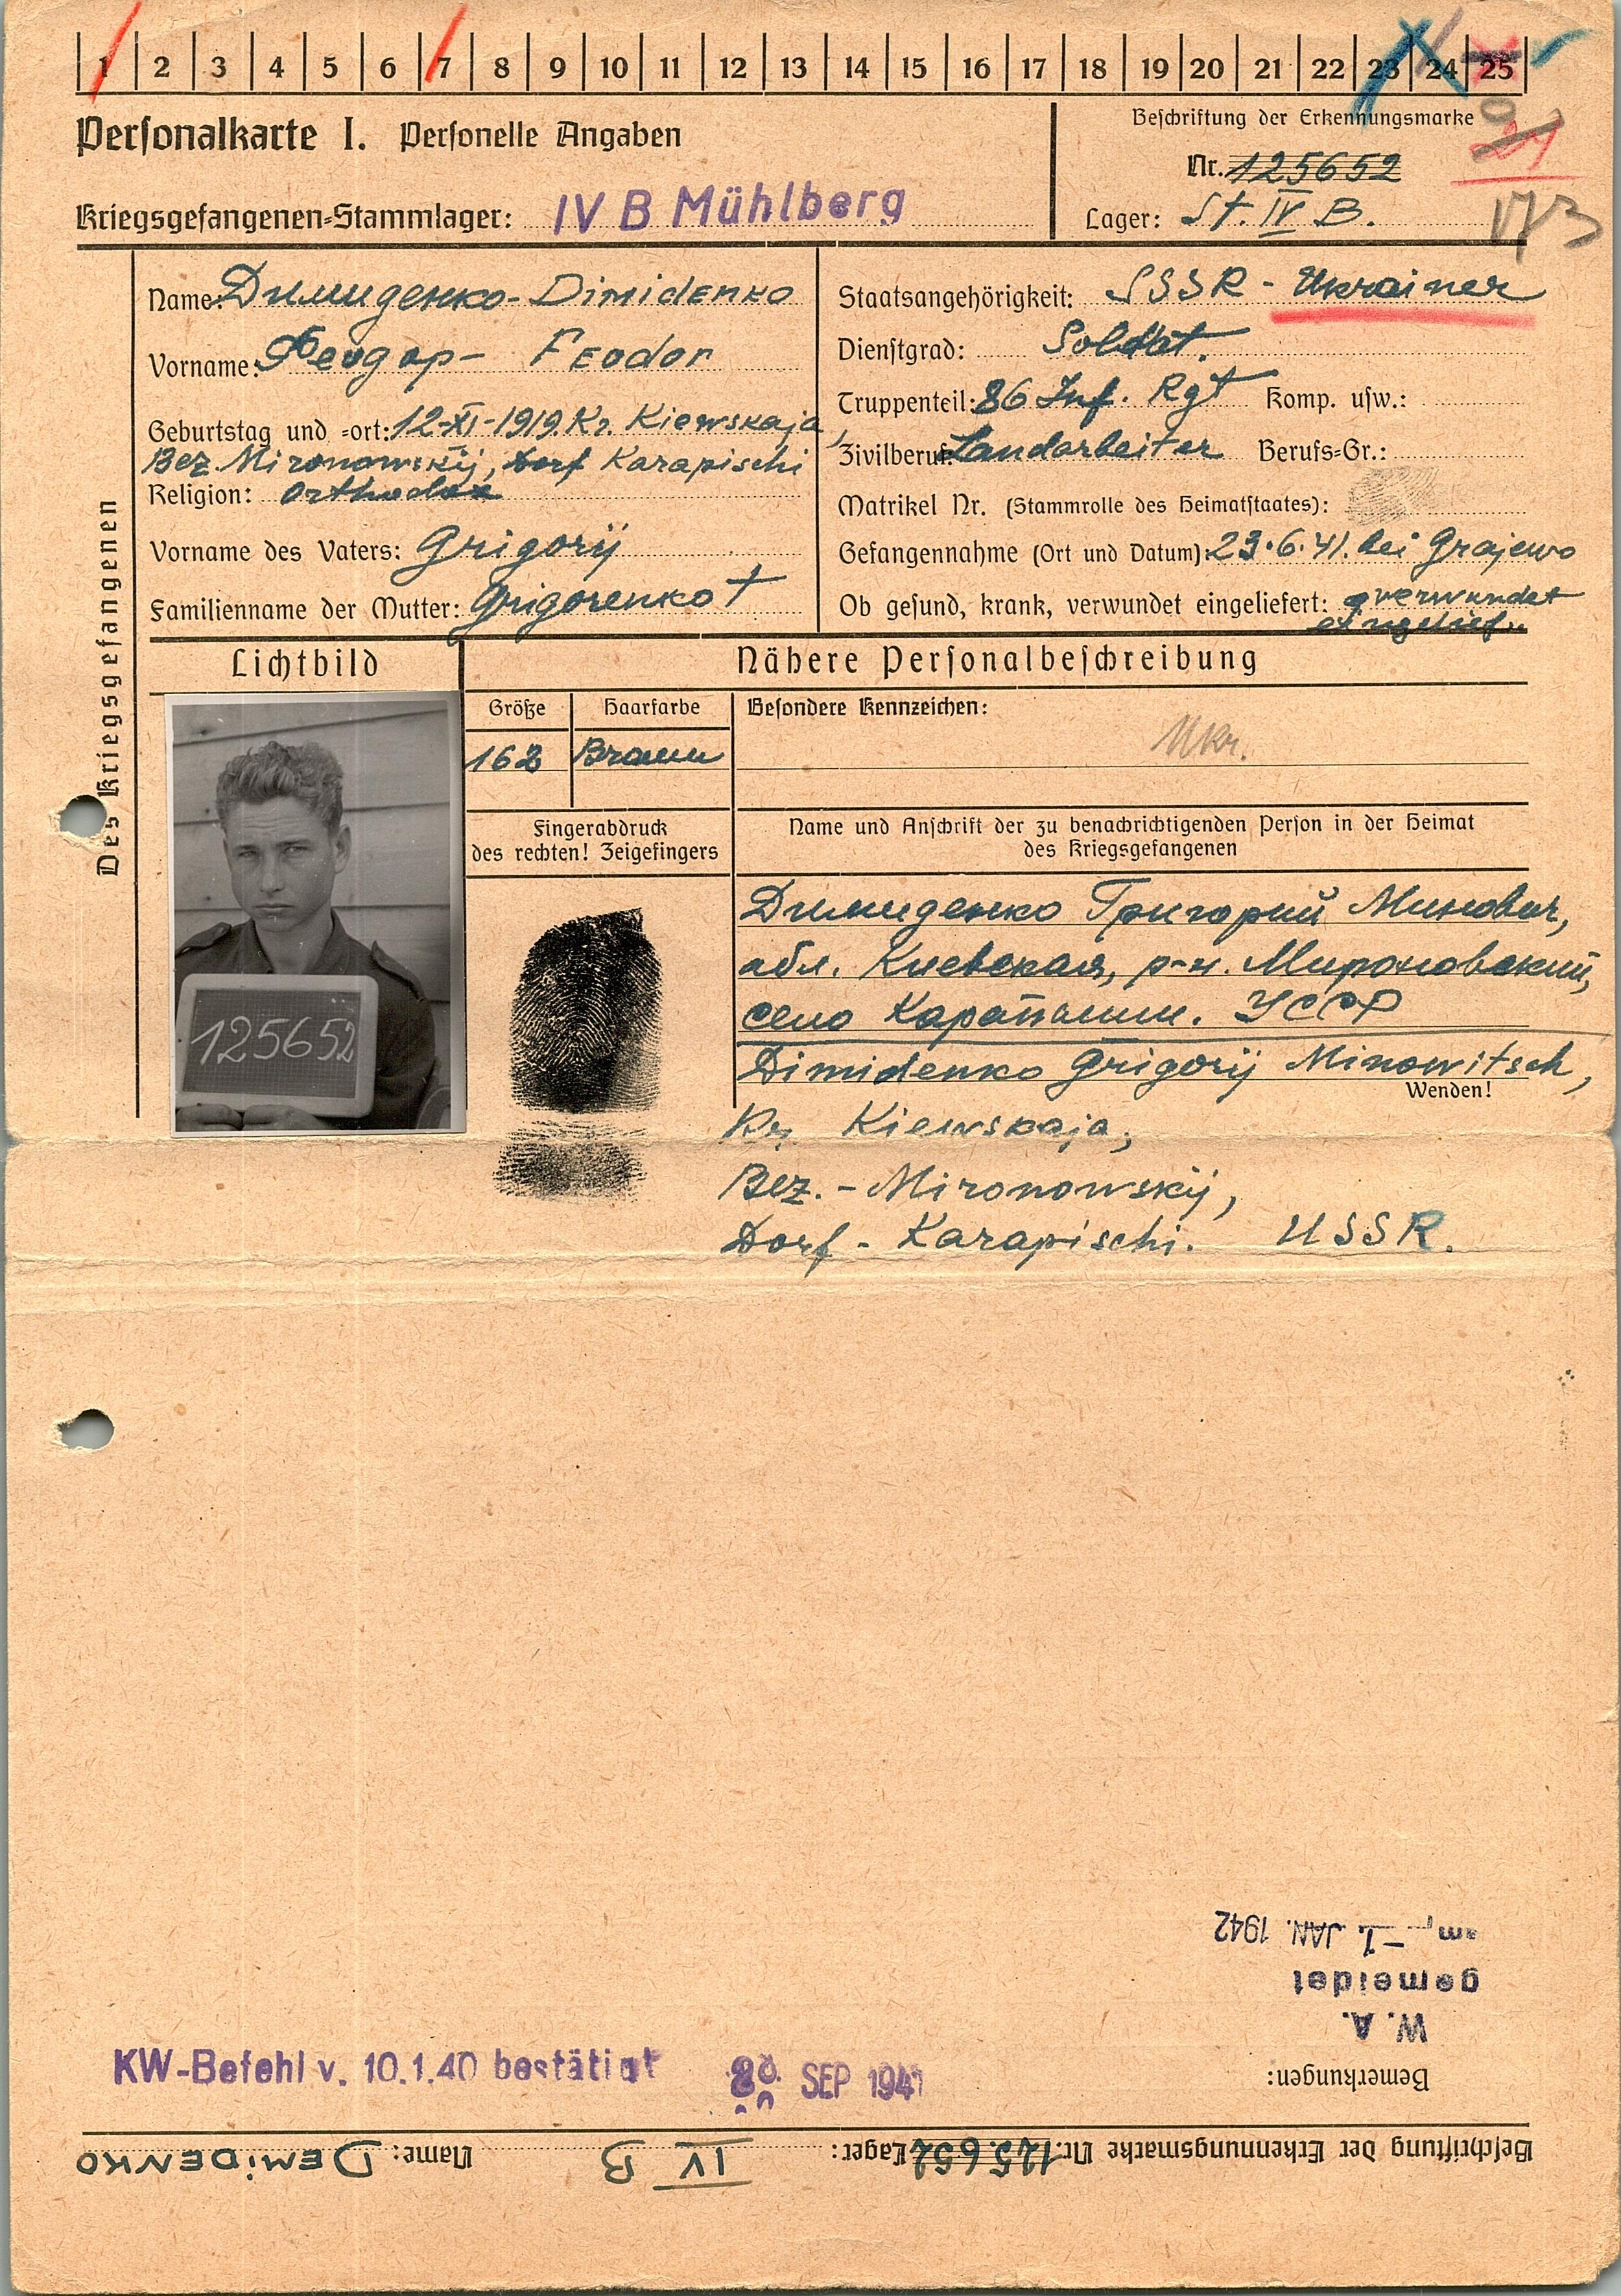 1 2 3 4 5 6 7 8 9 10 11 12 13 14 15 16 17 18 19 20 21 22 23 24 25
Personalkarte I. Personelle Angaben
Beschriftung der Erkennungsmarke
Nr. 125652
Kriegsgefangenen-Stammlager: IV B Mühlberg
Lager: St. IV B.
Des Kriegsgefangenen
Name: Димиденко - Dimidenko
Vorname: Феодор - Feodor
Geburtstag und -ort: 12-XI-1919. Kr. Kiewskaja,
Bez. Mironowskij, Dorf Karapischi
Religion: Orthodox
Vorname des Vaters: Grigorij
Familienname der Mutter: Grigorenko †
Staatsangehörigkeit: SSSR - Ukrainer
Dienstgrad: Soldat.
Truppenteil: 86 Inf. Rgt Komp. usw.:
Zivilberuf: Landarbeiter Berufs-Gr.:
Matrikel Nr. (Stammrolle des Heimatstaates):
Gefangennahme (Ort und Datum): 23.6.41. bei Grajewo
Ob gesund, krank, verwundet eingeliefert: verwundet
eingelief.
Lichtbild
Nähere Personalbeschreibung
Größe Haarfarbe Besondere Kennzeichen:
162 Braun Ukr.
Fingerabdruck
des rechten! Zeigefingers
Name und Anschrift der zu benachrichtigenden Person in der Heimat
des Kriegsgefangenen
125652
Димиденко Григорий Минович,
обл. Киевская, р-н. Мироновский,
село Карапиши. УССР
Dimidenko Grigorij Minowitsch,
Wenden!
Kr. Kiewskaja,
Bez. - Mironowskij,
Dorf - Karapischi. USSR.
am, -1. JAN. 1942
gemeldet
W. A.
Bemerkungen:
KW-Befehl v. 10.1.40 bestätigt SEP 1941
Beschriftung der Erkennungsmarke Nr. 125652 Lager: IV B Name: DEMIDENKO